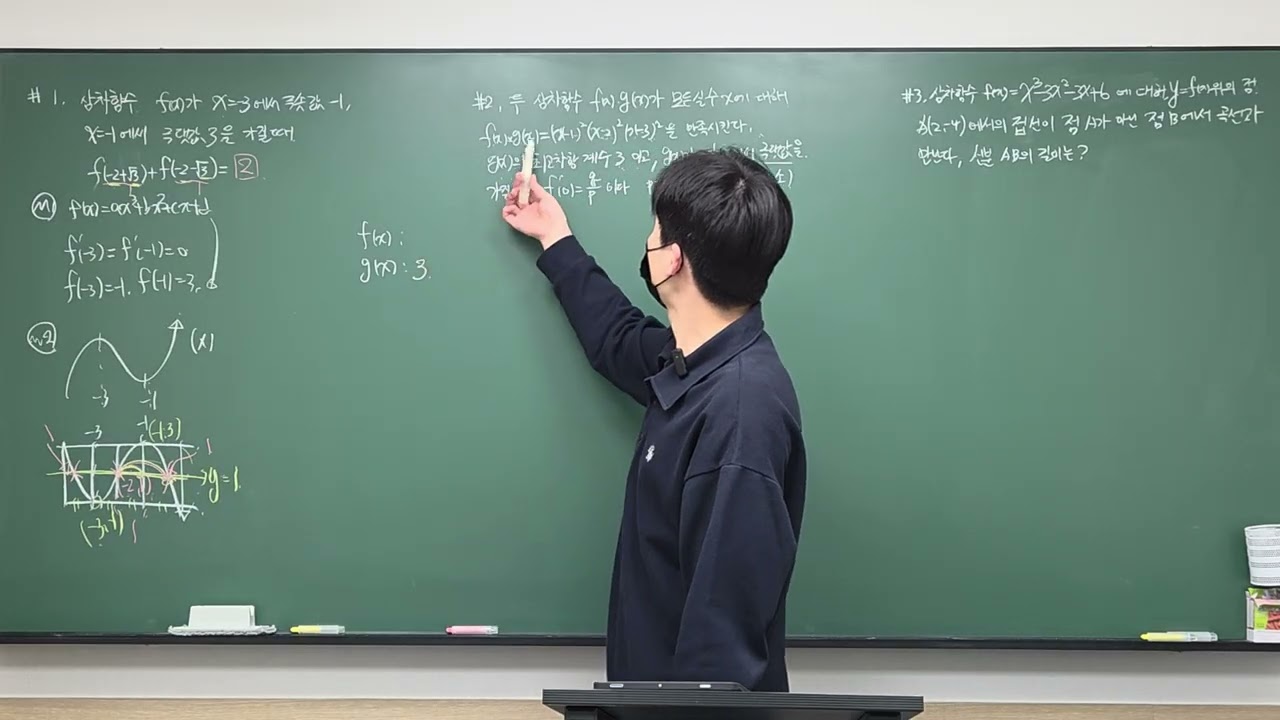 #1. 삼차함수 f(x)가 x=-3에서 극솟값 -1,
x=-1에서 극댓값 3을 가질때
f(-2+√3)+f(-2-√3)= 2
M1 f(x)=ax³+bx²+cx+d
f'(-3)=f'(-1)=0
f(-3)=-1, f(-1)=3
M2 (x)
-3 -1
-3 -1 (-1,3)
1
y=1
(-3,-1)
f(x):
g(x): 3
#2. 두 삼차함수 f(x) g(x)가 모든실수 x에 대해
f(x)g(x)=(x-1)²(x-2)²(x-3)²을 만족시킨다.
g(x)의 최고차항 계수 3 이고, 극댓값을
f'(0)=q/p 이다
#3. 삼차함수 f(x)=x³-3x²-3x+6 에 대해 y=f(x)위의 점
A(2,-4)에서의 접선이 점 A가 아닌 점 B에서 곡선과
만난다, 선분 AB의 길이는?